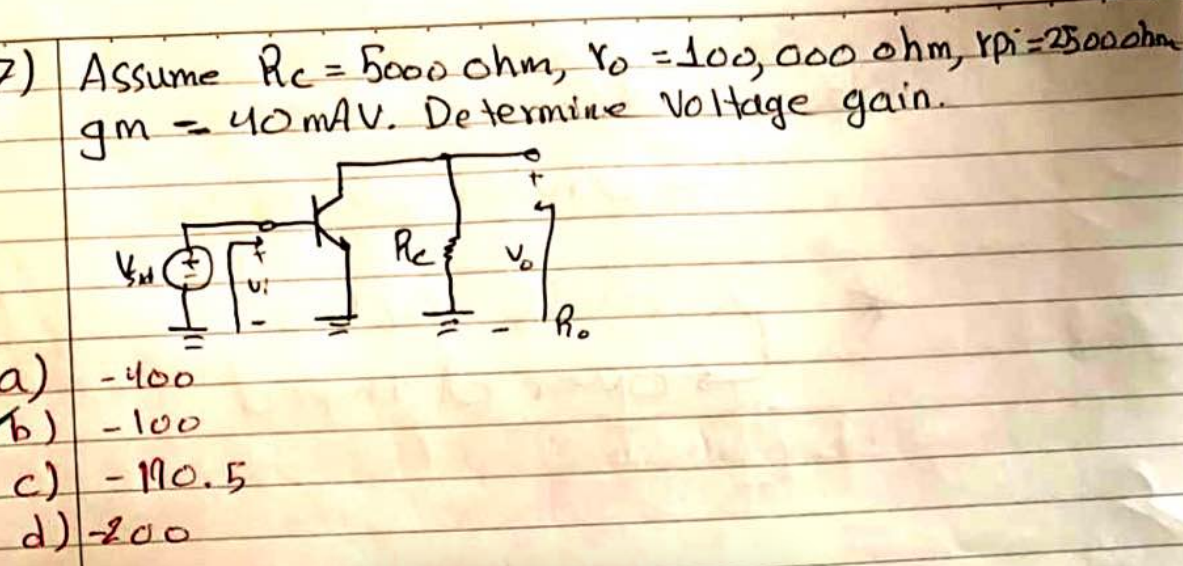 7) Assume Rc = 5000 ohm, ro = 100,000 ohm, rpi = 2500 ohm
gm = 40 mAV. Determine Voltage gain.
+
Rc
Vo
+
-
Vi
-
-
Ro
a) -400
b) -100
c) -190.5
d) -200